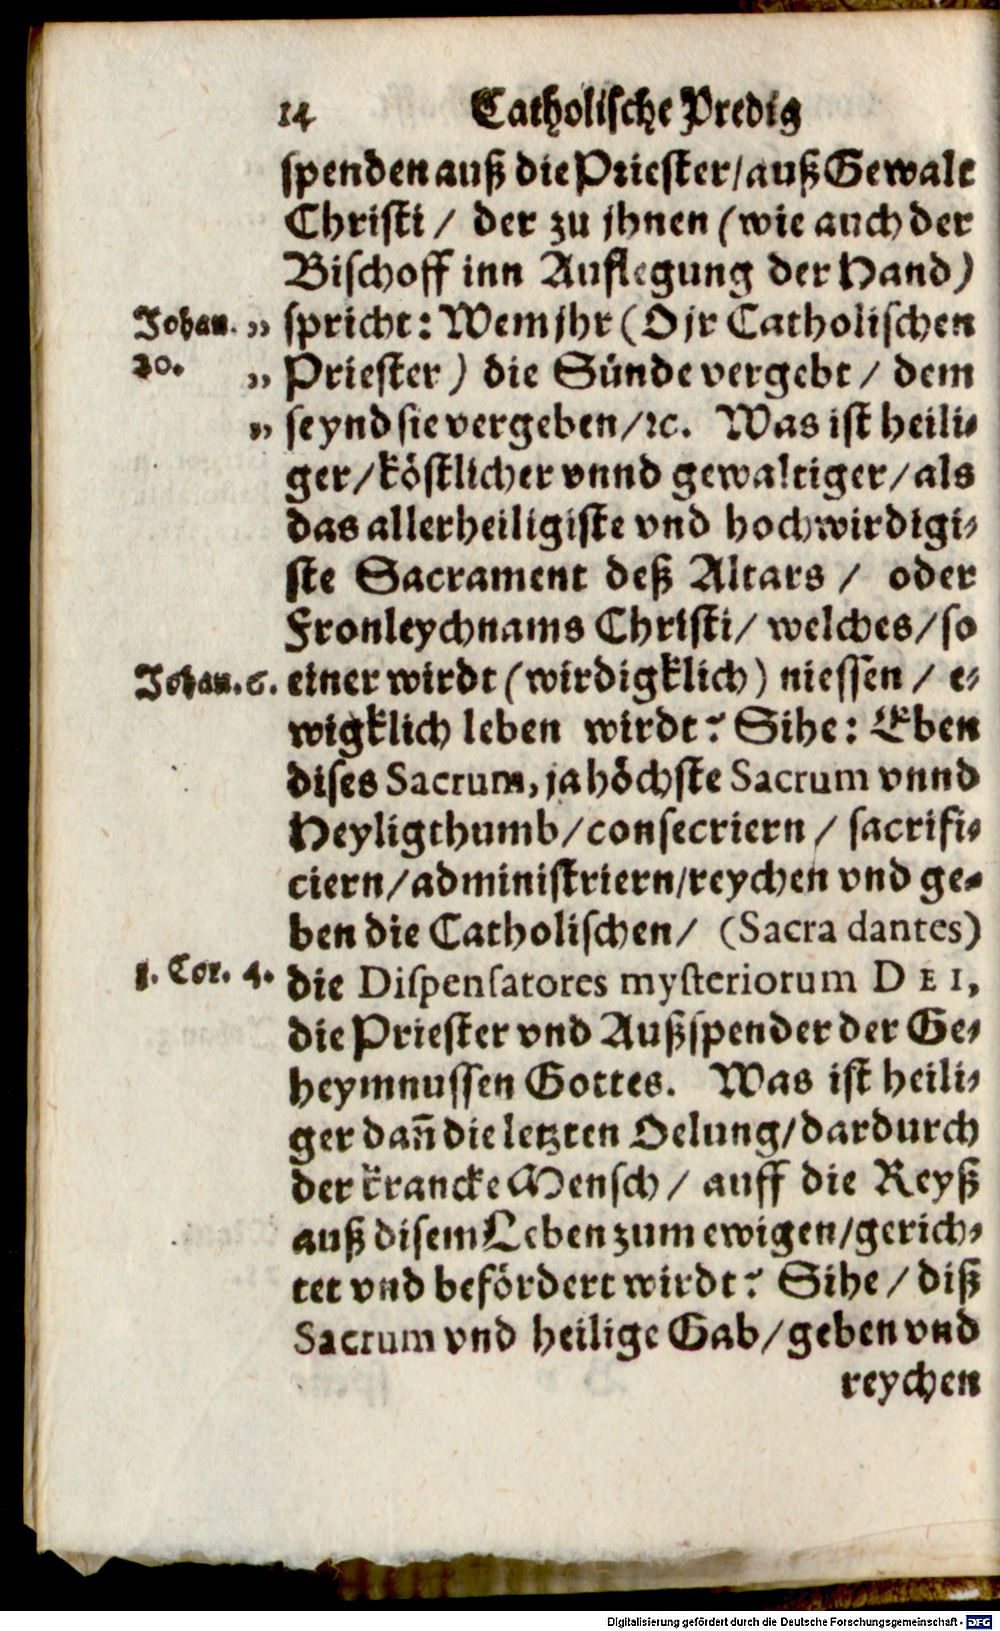 14 Catholische Predig
spenden auß die Priester/ auß Gewalt
Christi / der zu jhnen (wie auch der
Bischoff inn Auflegung der Hand)
Johan. „ spricht: Wem jhr (O jr Catholischen
20. „ Priester) die Sünde vergebt / dem
„ seynd sie vergeben/ ꝛc. Was ist heili-
ger/ köstlicher vnnd gewaltiger/ als
das allerheiligiste vnd hochwirdigi-
ste Sacrament deß Altars / oder
Fronleychnams Christi/ welches/ so
Johan. 6. einer wirdt (wirdigklich) niessen / e-
wigklich leben wirdt? Sihe: Eben
dises Sacrum, ja höchste Sacrum vnnd
Heyligthumb/ consecriern / sacrifi-
ciern/ administriern/ reychen vnd ge-
ben die Catholischen/ (Sacra dantes)
1. Cor. 4. die Dispensatores mysteriorum DEI,
die Priester vnd Außspender der Ge-
heymnussen Gottes. Was ist heili-
ger dañ die letzten Oelung/ dardurch
der krancke Mensch / auff die Reyß
auß disem Leben zum ewigen/ gerich-
tet vnd befördert wirdt? Sihe / diß
Sacrum vnd heilige Gab/ geben vnd
reychen
Digitalisierung gefördert durch die Deutsche Forschungsgemeinschaft - DFG